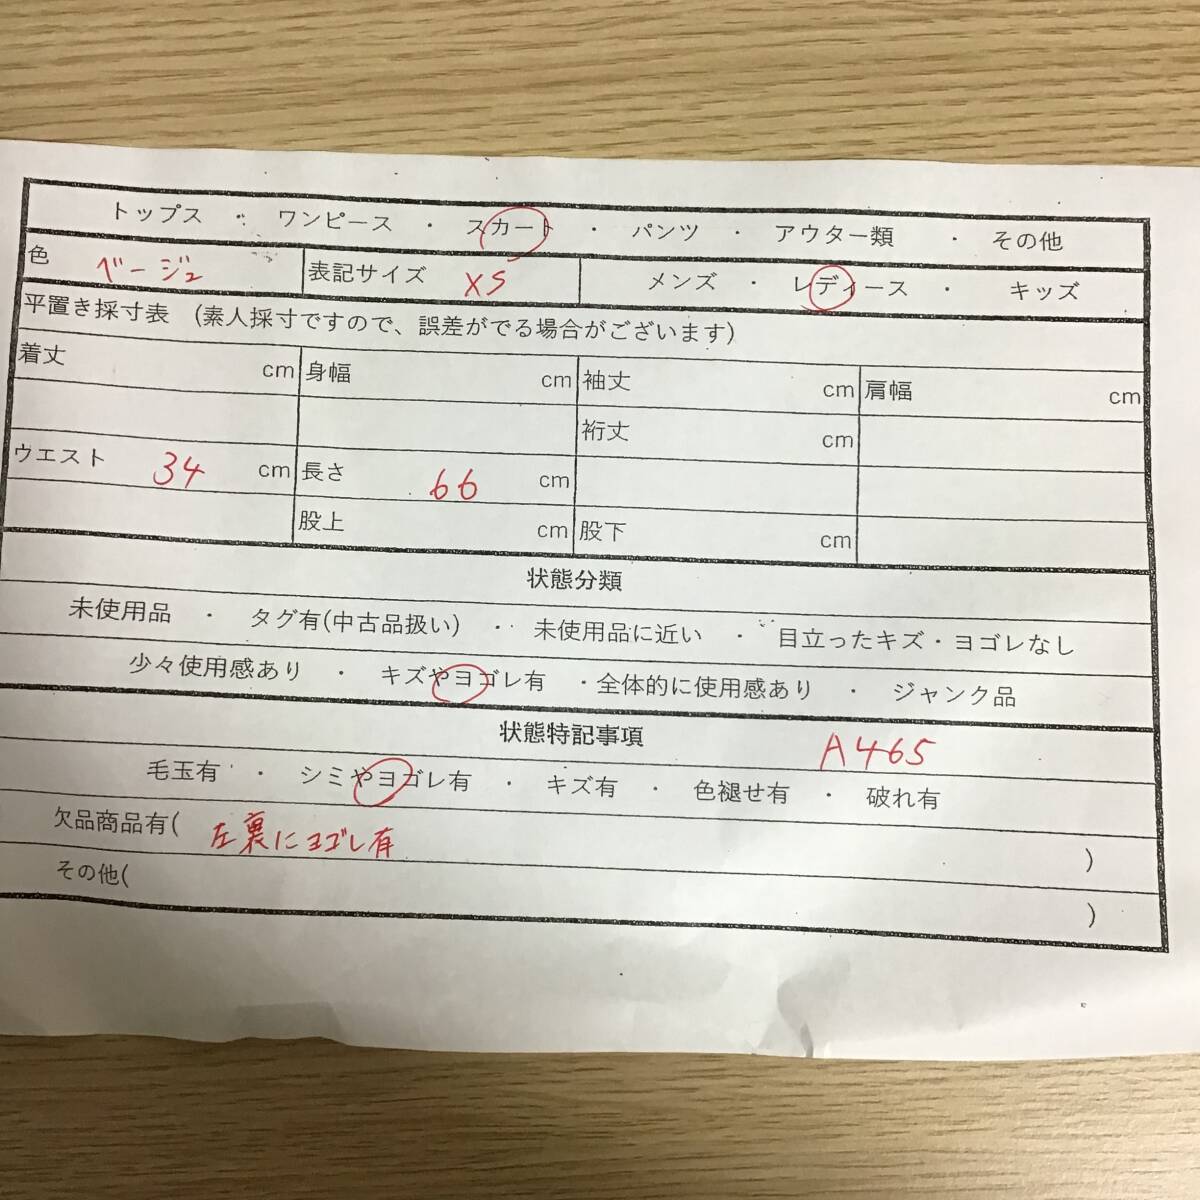 トップス ・ ワンピース ・ スカート ・ パンツ ・ アウター類 ・ その他
色 ベージュ 表記サイズ XS メンズ ・ レディース ・ キッズ
平置き採寸表 (素人採寸ですので、誤差がでる場合がございます)
着丈 cm 身幅 cm 袖丈 cm 肩幅 cm
裄丈 cm
ウエスト 34 cm 長さ 66 cm
股上 cm 股下 cm
状態分類
未使用品 ・ タグ有(中古品扱い) ・ 未使用品に近い ・ 目立ったキズ・ヨゴレなし
少々使用感あり ・ キズやヨゴレ有 ・全体的に使用感あり ・ ジャンク品
状態特記事項 A465
毛玉有 ・ シミやヨゴレ有 ・ キズ有 ・ 色褪せ有 ・ 破れ有
欠品商品有( 左裏にヨゴレ有 )
その他( )